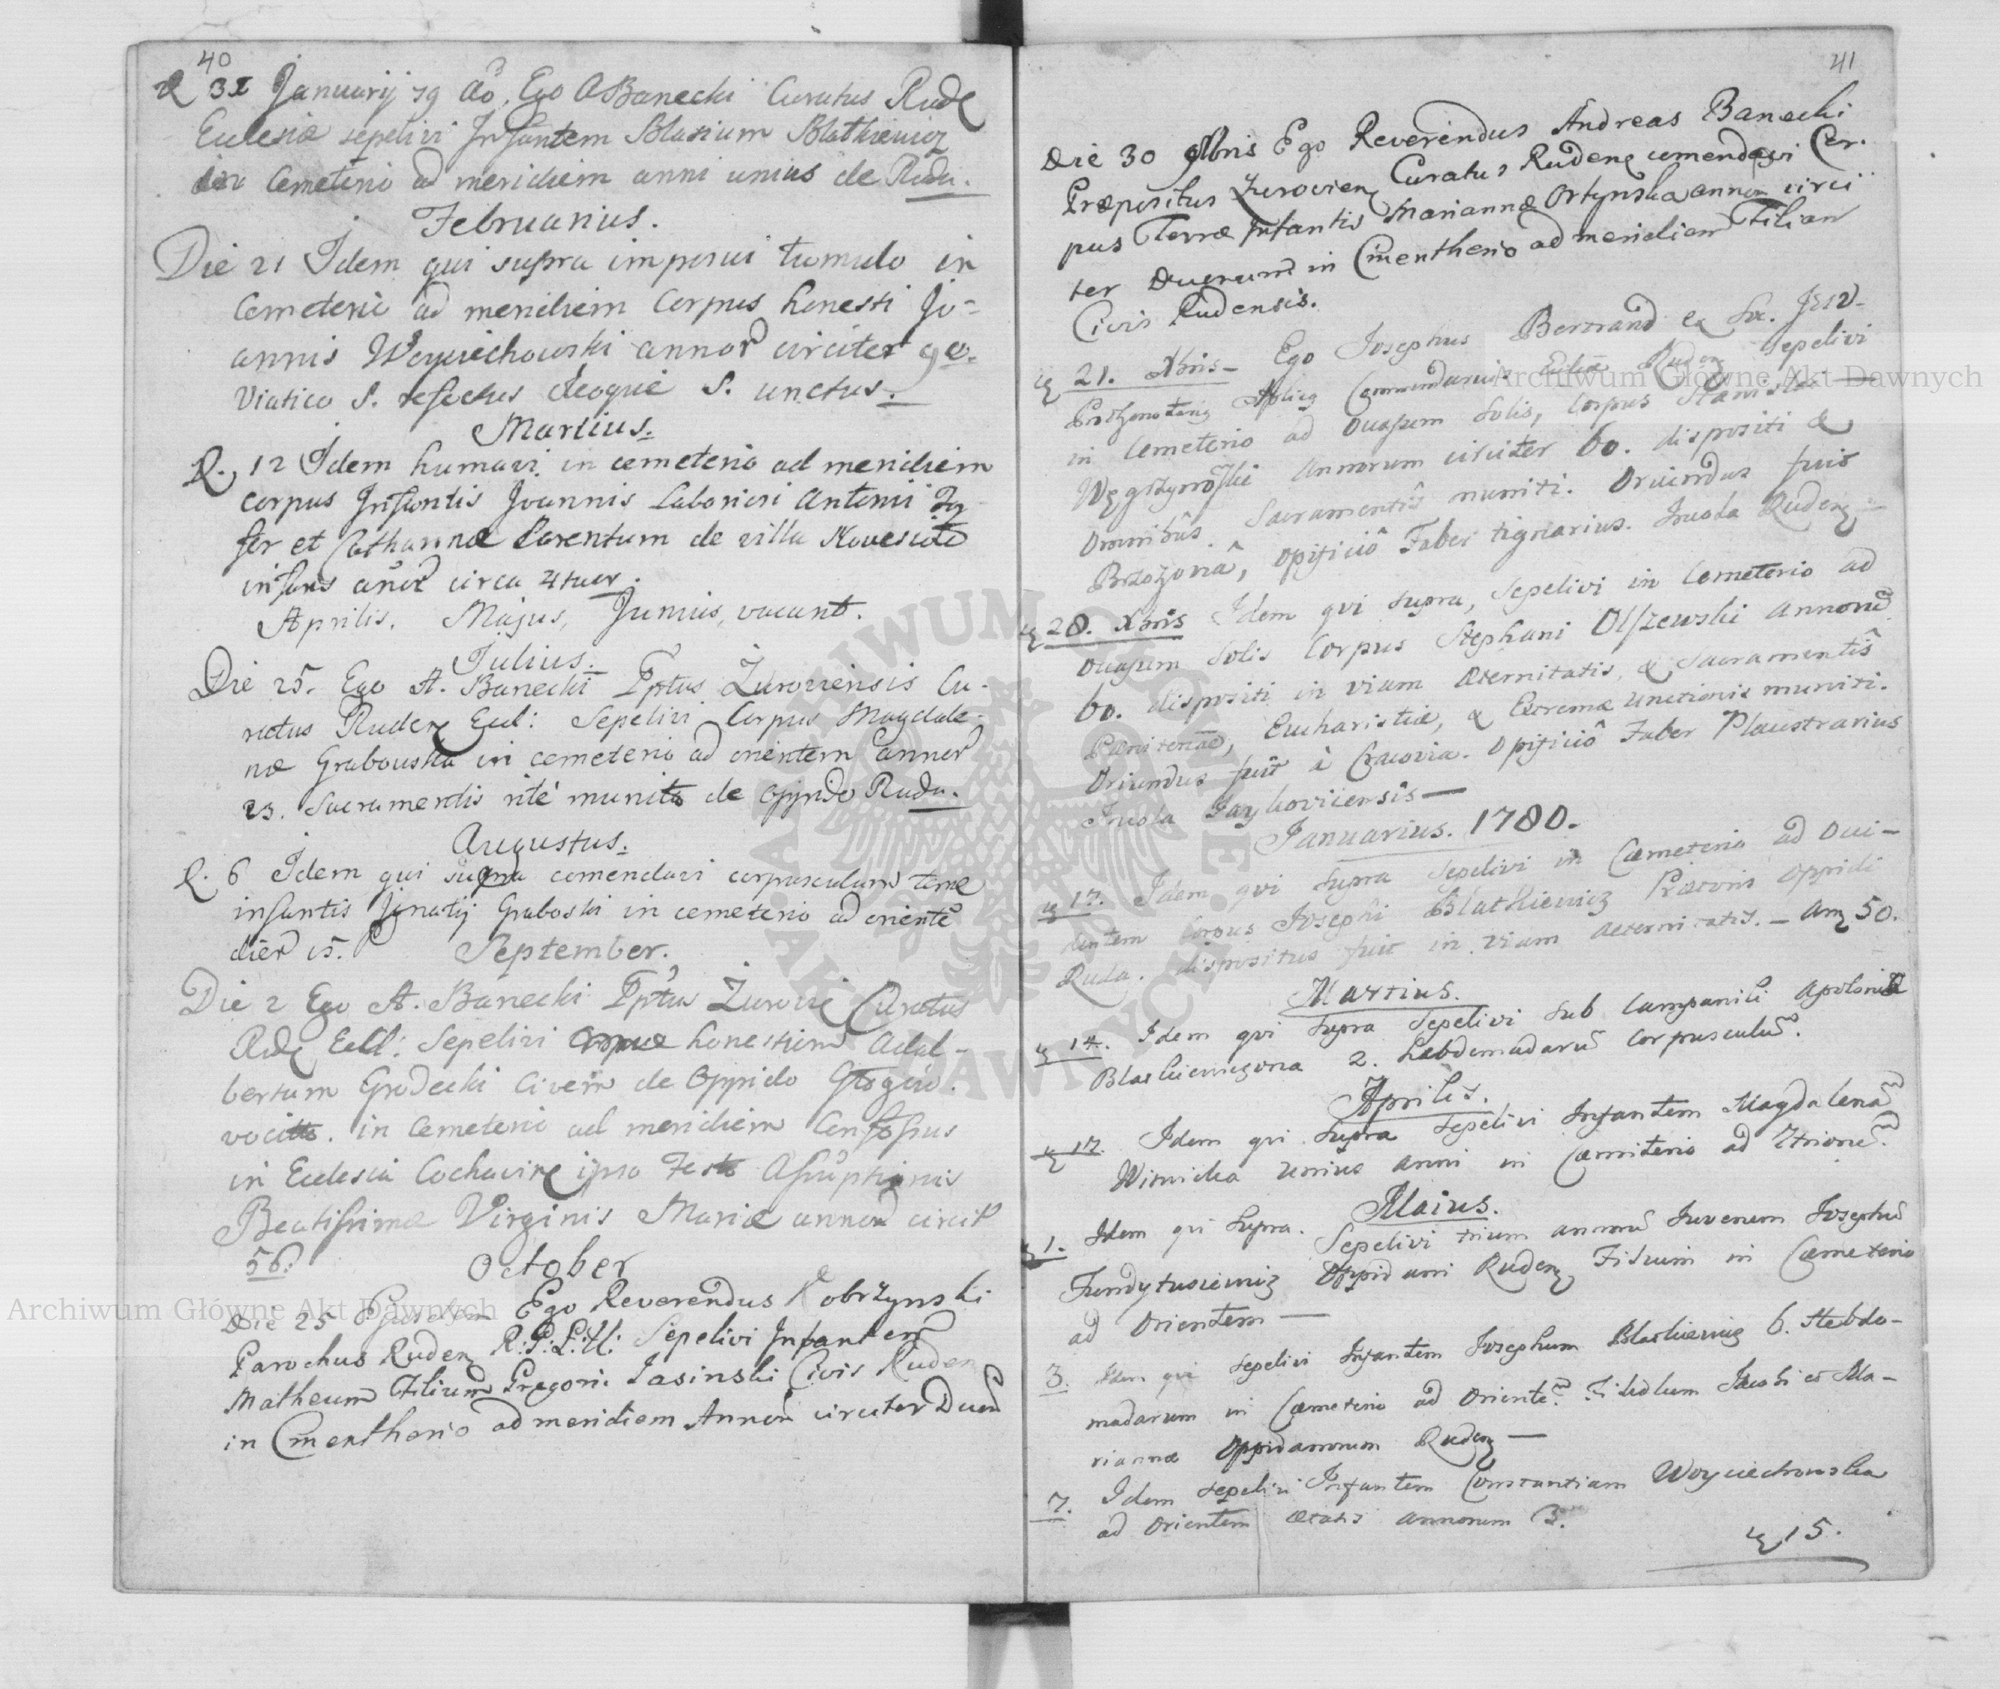 40
D 31 Januarij 79 Ao. Ego A Banecki Curatus Rudę
Eclesiæ sepelivi Infantem Blasium Blatkiewicz
in Cemeterio ad meridiem anni unius de Ruda.
Februarius.
Die 21 Idem qui supra imposui tumulo in
Cemeterio ad meridiem Corpus honesti Jo-
annis Woyciechowski annor circiter 90.
Viatico S. refectus deoque S. unctus.
Martius.
D. 12 Idem humavi in cemeterio ad meridiem
corpus Infantis Joannis Laboriosi Antonii
et Catharinæ Parentum de villa
infans circa 4tuor.
Aprilis. Majus, Junius, vacant.
Julius.
Die 25. Ego A. Banecki Pptus Zuroviensis Cu-
ratus Ruden Eccl: Sepelivi Corpus Magdale-
næ Grabouska in cemeterio ad orientem annor
23. Sacramentis rite munita de oppido Ruda.
Augustus.
D. 6 Idem qui supra comendavi corpusculum
infantis Ignatij Graboski in cemeterio ad oriente
dier 15.
September.
Die 2 Ego A. Banecki Pptus Zurovie Curatus
Rudę Eccl: Sepelivi honestum Adal-
bertum Grodecki Civem de Oppido
in Cemeterio ad meridiem
in Eclesia ipso
Beatissimæ Virginis Mariæ annor circit
56.
October
Die 25 Ejusdem Ego Reverendus Kobrzynski
Parochus Ruden R:P:L:U: Sepelivi Infantem
Matheum Filium Gregorii Jasinski Civis Ruden
in Cmentherio ad meridiem Annor circiter Duor
41
Die 30 9bris Ego Reverendus Andreas Banecki
Præpositus Zurovien Curatus Rudenę comendavi Cor-
pus Terræ Infantis Mariannæ Ortynska annor circi
ter Duorum in Cmentherio ad meridiem Filiam
Civis Rudensis.
21. Xbris - Ego Josephus Bertrand ex Soc. JESU-
Comendarius Eccliæ Ruden Sepelivi
in Cemeterio ad ocasum Solis, Corpus Stanislai
annorum circiter 60. dispositi &
Omnibus Sacramentis muniti. Oriundus fuit
opificio Faber tignarius. Incola Ruden
28. Xbris Idem qvi supra, Sepelivi in Cemeterio ad
ocasum Solis Corpus Stephani Olszewski annorum
60. dispositi in viam Æternitatis, & Sacramentis
Pænitentiæ, Eucharistiæ, & Extremæ unctionis muniti.
Oriundus fuit à Cracovia. Opificio Faber Plaustrarius
Incola
Januarius. 1780.
17. Idem qvi supra Sepelivi in Cæmeterio ad occi-
dentem corpus Josephi Blatkiewicz Prætoris oppidi
Ruda. dispositus fuit in viam aeternitatis. - An 50.
Martius.
14. Idem qvi supra Sepelivi Sub Campanili Apoloniæ
2. hebdomadarum corpusculum.
Aprilis.
17. Idem qvi supra Sepelivi Infantem Magdalenam
Wisnicka unius anni in Cæmiterio ad
Maius.
1. Idem qvi supra. Sepelivi trium annorum Juvenem Josephum
Oppidani Ruden Filium in Cæmeterio
ad Orientem
3. Idem qvi Sepelivi Infantem Josephum Blatkiewicz 6. Hebdo-
madarum in Cæmeterio ad Orientem. Filiolum Jacobi et Ma-
riannæ Oppidanorum Ruden
7. Idem Sepelivi Infantem Constantiam Woyciechowska
ad Orientem ætatis annorum 3.
15.
Archiwum Główne Akt Dawnych
Archiwum Główne Akt Dawnych
ARCHIWUM GŁÓWNE AKT DAWNYCH